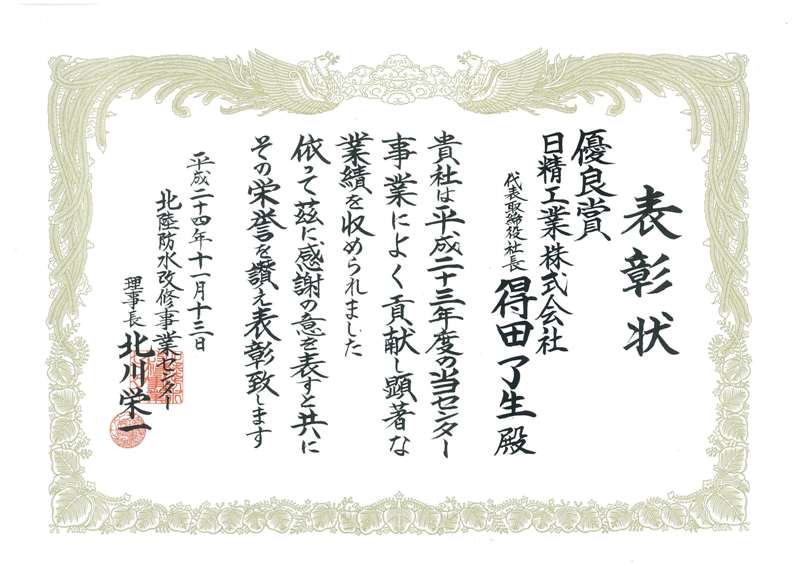 表彰状
優良賞
日精工業株式会社
代表取締役社長 得田了生殿
貴社は平成二十三年度の当センター
事業によく貢献し顕著な
業績を収められました
依って茲に感謝の意を表すと共に
その栄誉を讃え表彰致します
平成二十四年十一月十三日
北陸防水改修事業センター
理事長 北川栄一